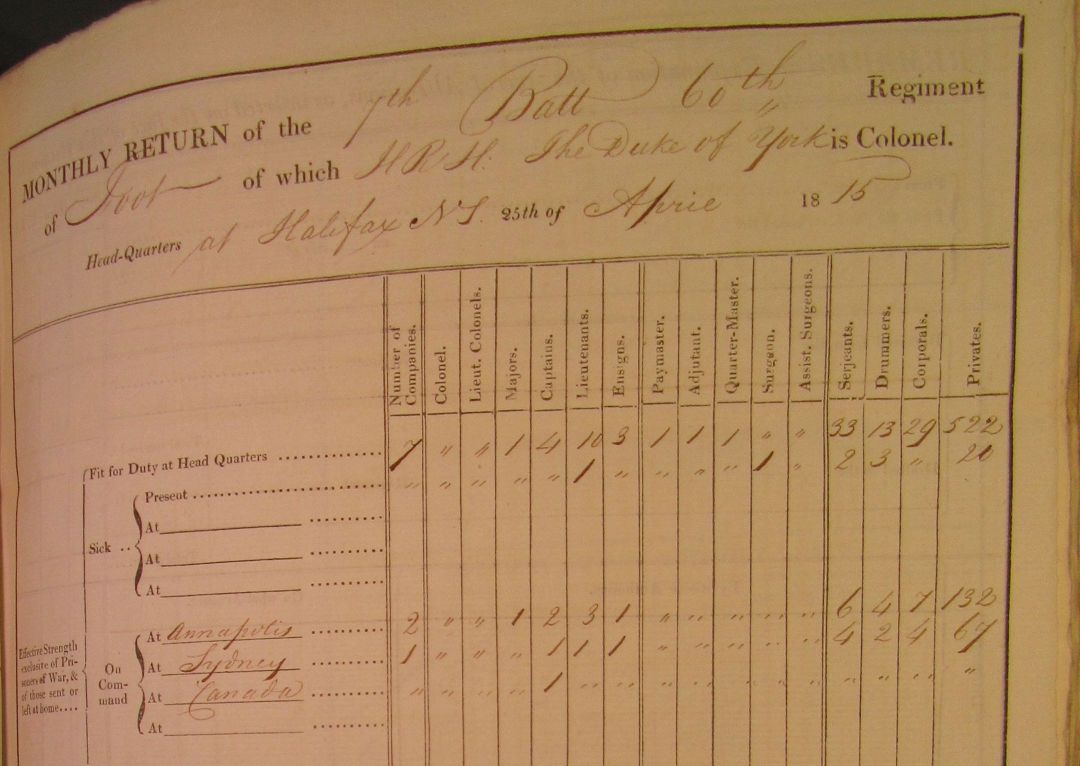 MONTHLY RETURN of the 7th Batt 60th Regiment
of Foot of which H R H. The Duke of York is Colonel.
Head-Quarters at Halifax NS. 25th of April 1815
Number of Companies. Colonel. Lieut. Colonels. Majors. Captains. Lieutenants. Ensigns. Paymaster. Adjutant. Quarter-Master. Surgeon. Assist. Surgeons. Serjeants. Drummers. Corporals. Privates.
Fit for Duty at Head Quarters 7 " " 1 4 10 3 1 1 1 " " 33 13 29 522
Sick Present " " " " " 1 " " " " 1 " 2 3 " 20
At
At
At
Effective Strength exclusive of Prisoners of War, & of those sent or left at home....
On Command
At Annapolis 2 " " 1 2 3 1 " " " " " 6 4 7 132
At Sydney 1 " " " 1 1 1 " " " " " 4 2 4 67
At Canada " " " " 1 " " " " " " " " " " "
At